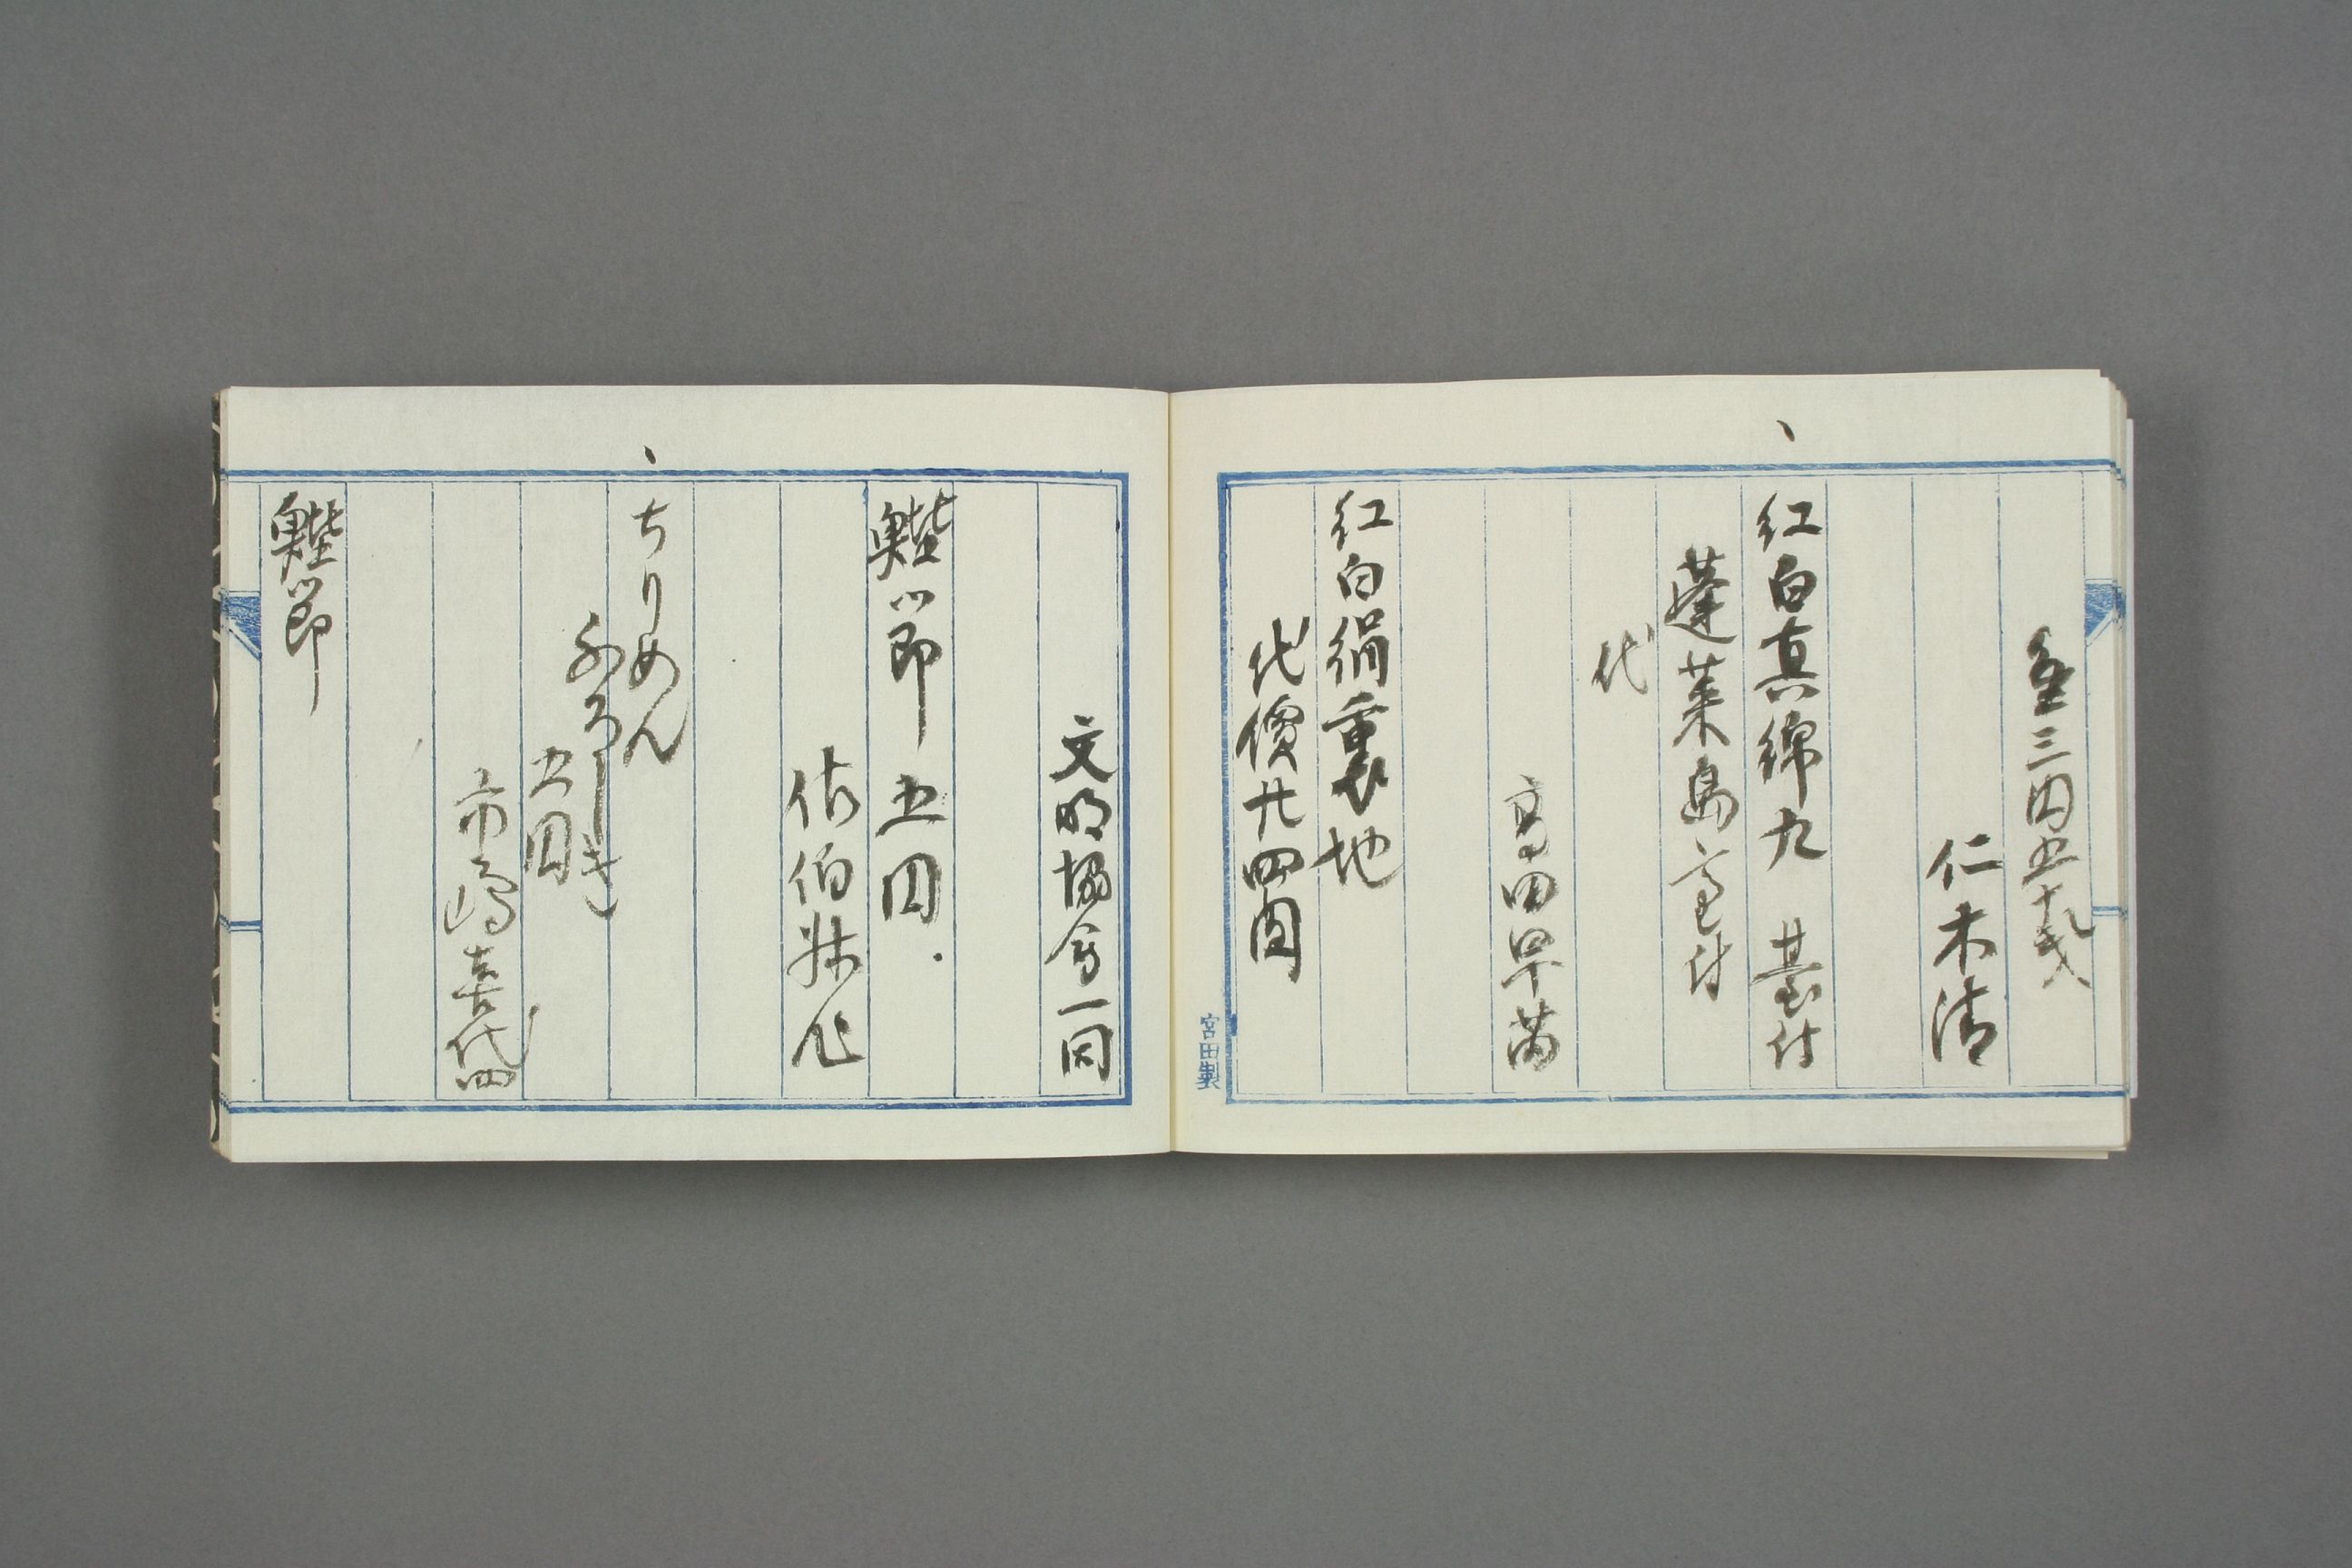 金三円五十銭
仁木清
紅白真綿九 臺付
蓬莱島臺付
代
高田早苗
紅白絹重地
代價廿四円
宮田製
文明協會一同
鰹節五円
佑伯
ちりめん
ふろしき
五円
市嶋喜代四
鰹節